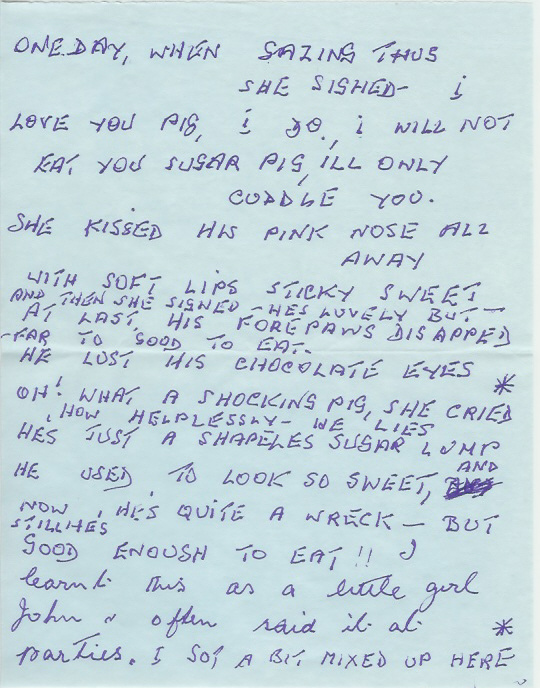 ONE DAY, WHEN GAZING THUS
SHE SIGHED- i
LOVE YOU PIG, i DO, i WILL NOT
EAT YOU SUGAR PIG, ILL ONLY
CUDDLE YOU.
SHE KISSED HIS PINK NOSE ALL
AWAY
WITH SOFT LIPS STICKY SWEET
AND THEN SHE SIGNED - HES LOVELY BUT -
AT LAST, HIS FOREPAWS DISAPPED
-FAR TO GOOD TO EAT.
HE LOST HIS CHOCOLATE EYES *
OH! WHAT A SHOCKING PIG, SHE CRIED
, HOW HELPLESSLY- HE LIES
HES JUST A SHAPELES SUGAR LUMP
HE USED, TO LOOK SO SWEET, AND
NOW, HE'S QUITE A WRECK - BUT
STILL HES
GOOD ENOUGH TO EAT!! I
learnt this as a little girl
John & often said it at *
parties. I GOT A BIT MIXED UP HERE